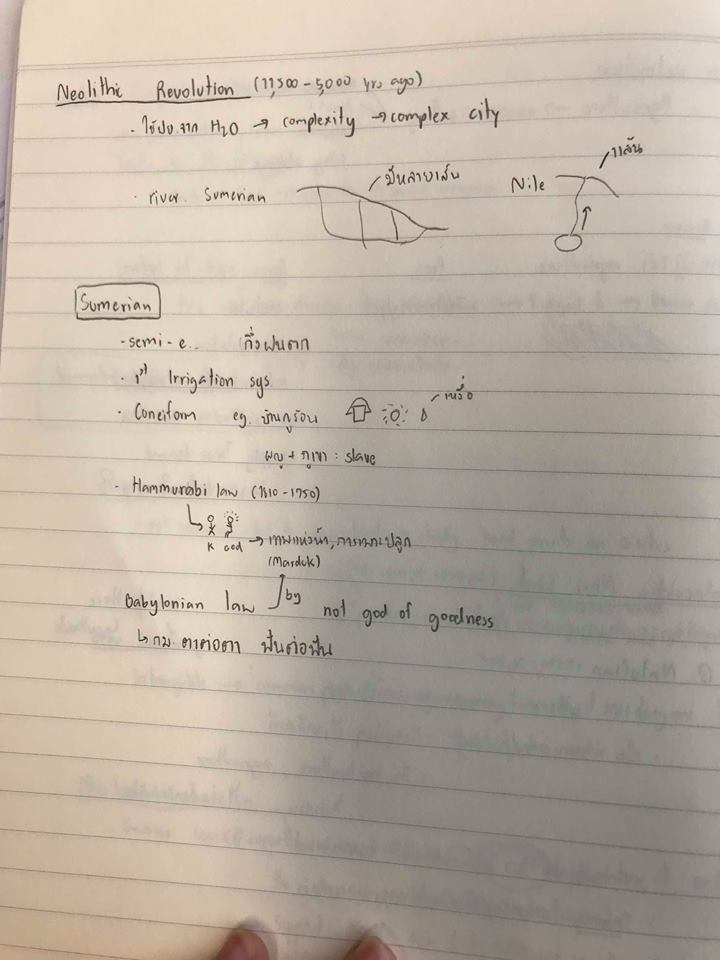 Neolithic Revolution (11,500 - 5,000 yrs ago)
· ใช้ปย. จาก H2O → complexity → complex city
· river Sumerian มีหลายเส้น Nile 1 เส้น
Sumerian
- semi-e.. กึ่งฝนตก
· 1st Irrigation sys
· Coneiform eg. บ้านฤดูร้อน เหงื่อ
ผญ + ภูเขา : slave
· Hammurabi law (1810 - 1750)
K God → เทพแห่งน้ำ, การเพาะปลูก
(Marduk)
Babylonian law by not god of goodness
↳ กม. ตาต่อตา ฟันต่อฟัน